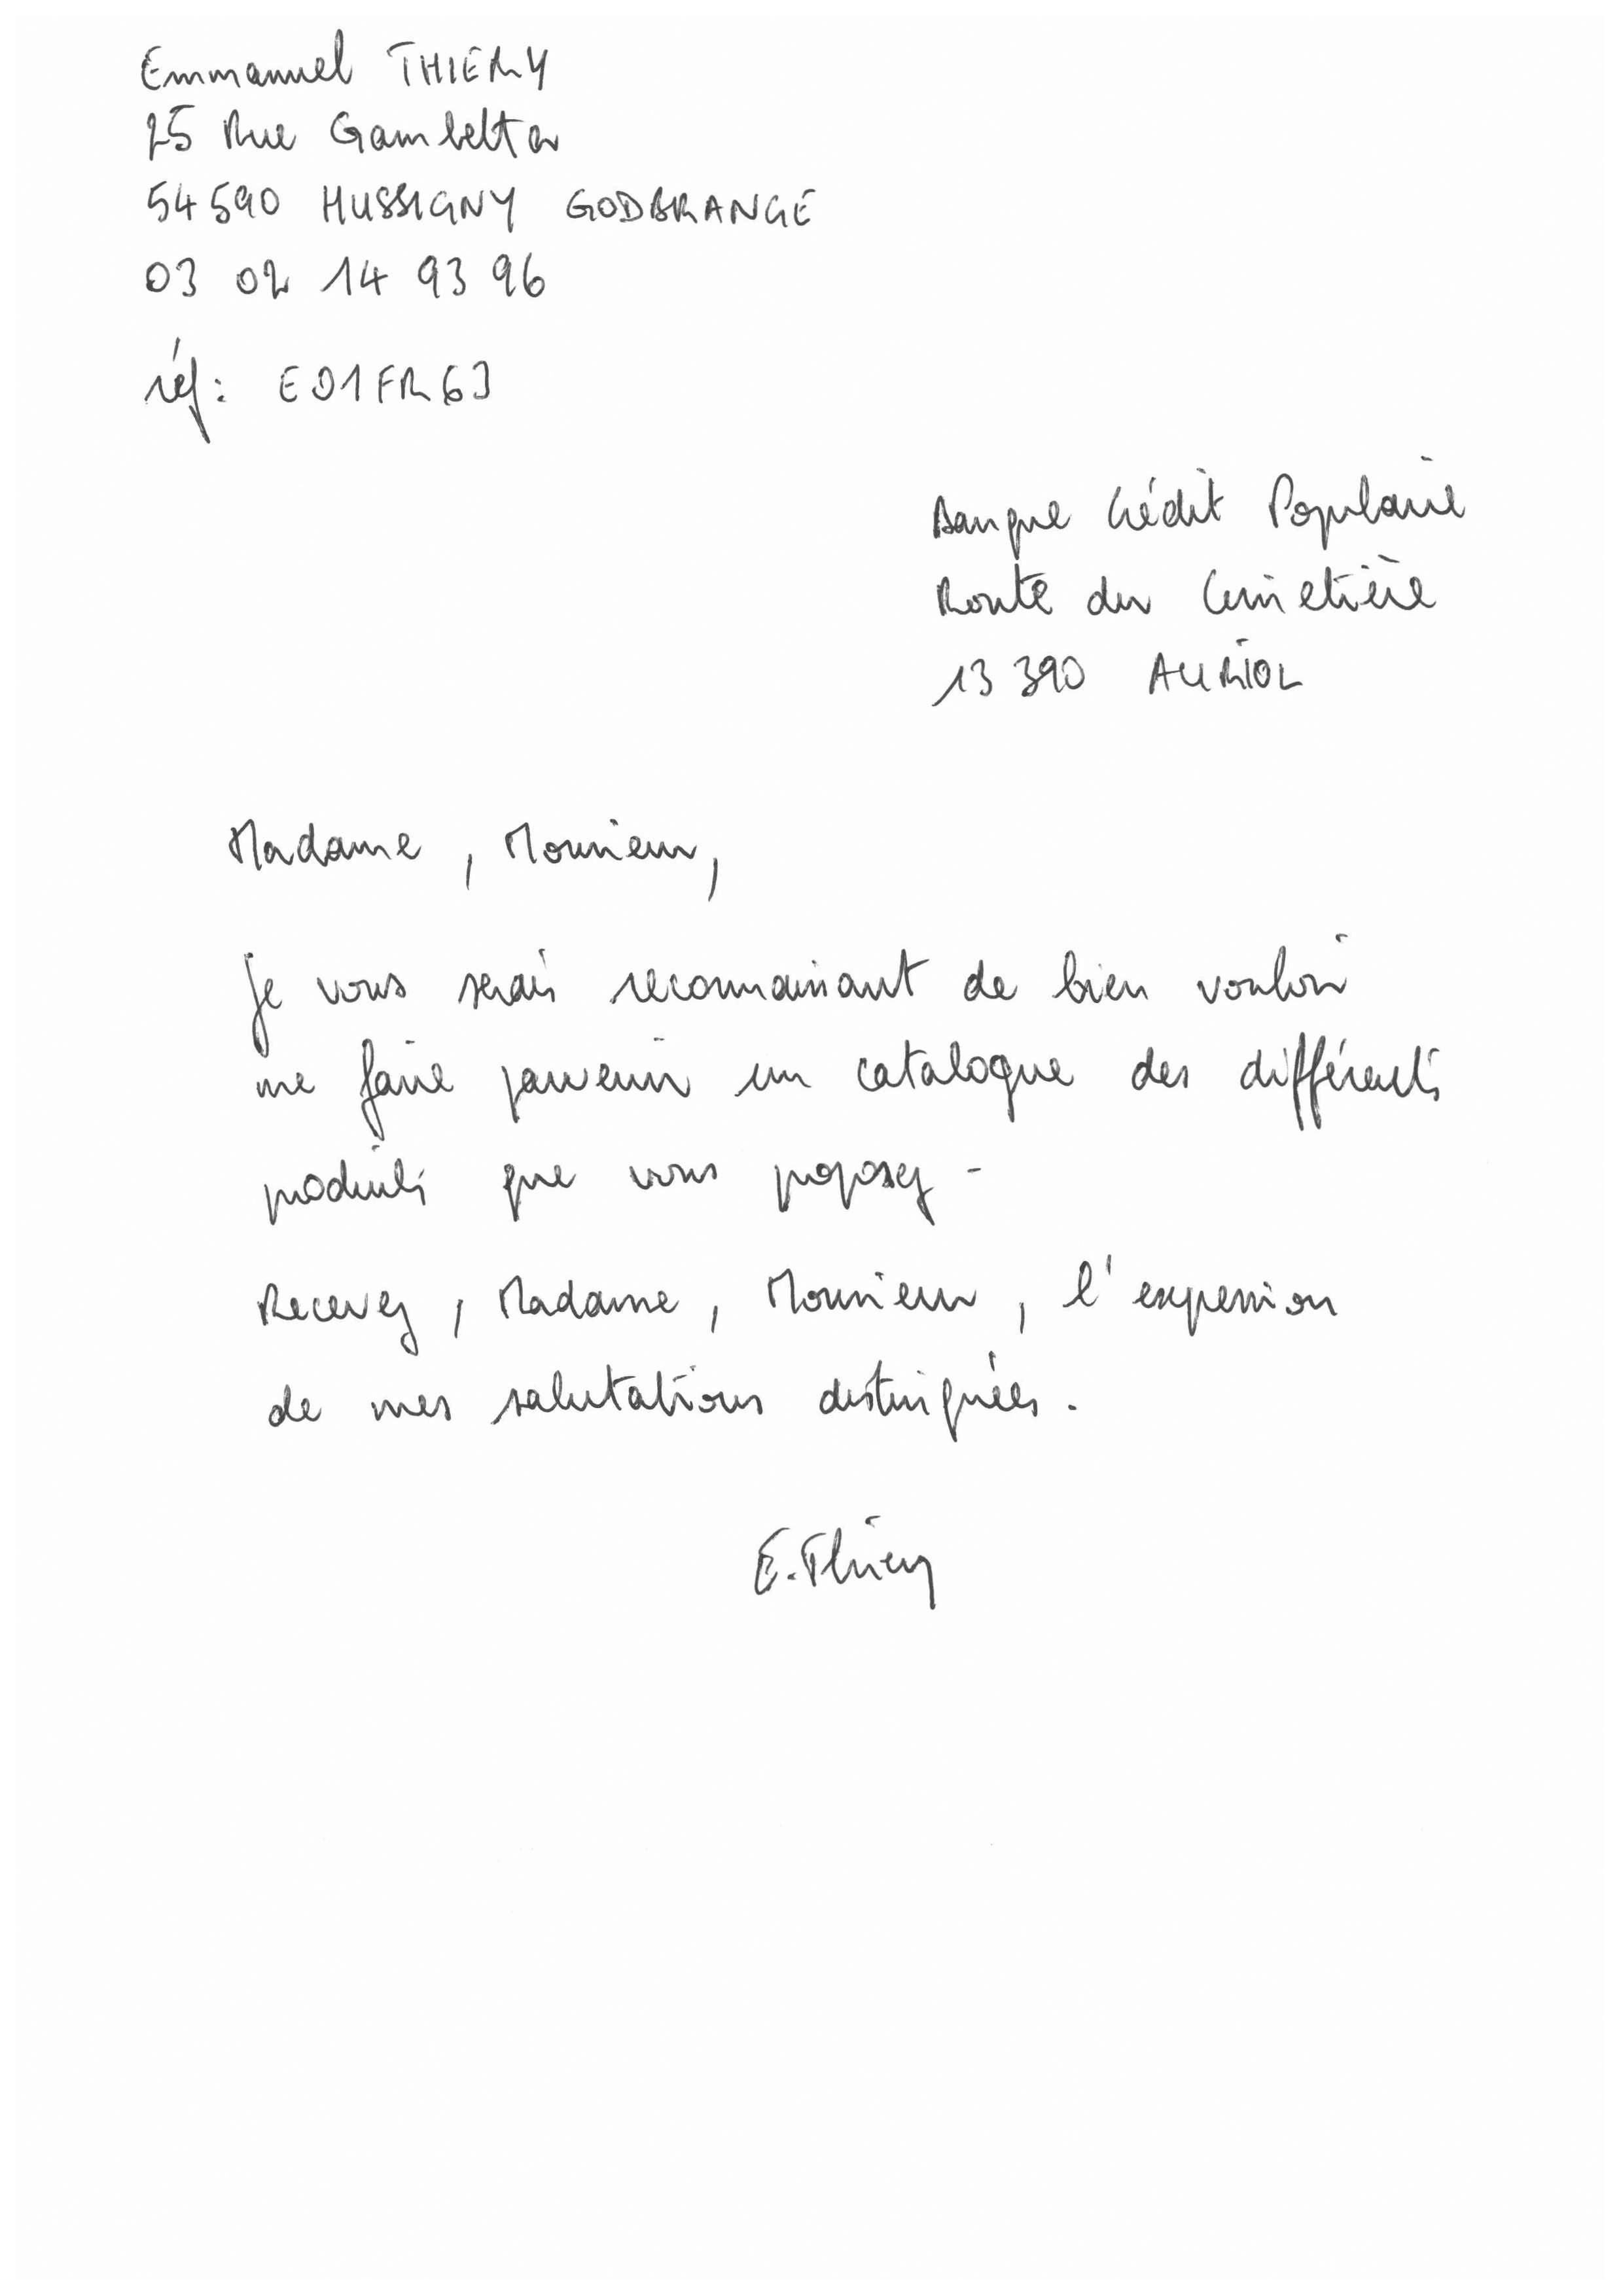 Emmanuel THIERY
25 Rue Gambetta
54590 HUSSIGNY GODBRANGE
03 02 14 93 96
réf: E01FR63
Banque Crédit Populaire
Route du Cimetière
13390 AURIOL
Madame, Monsieur,
Je vous serais reconnaissant de bien vouloir
me faire parvenir un catalogue des différents
produits que vous proposez -
Recevez, Madame, Monsieur, l'expression
de mes salutations distinguées.
E. Thiery